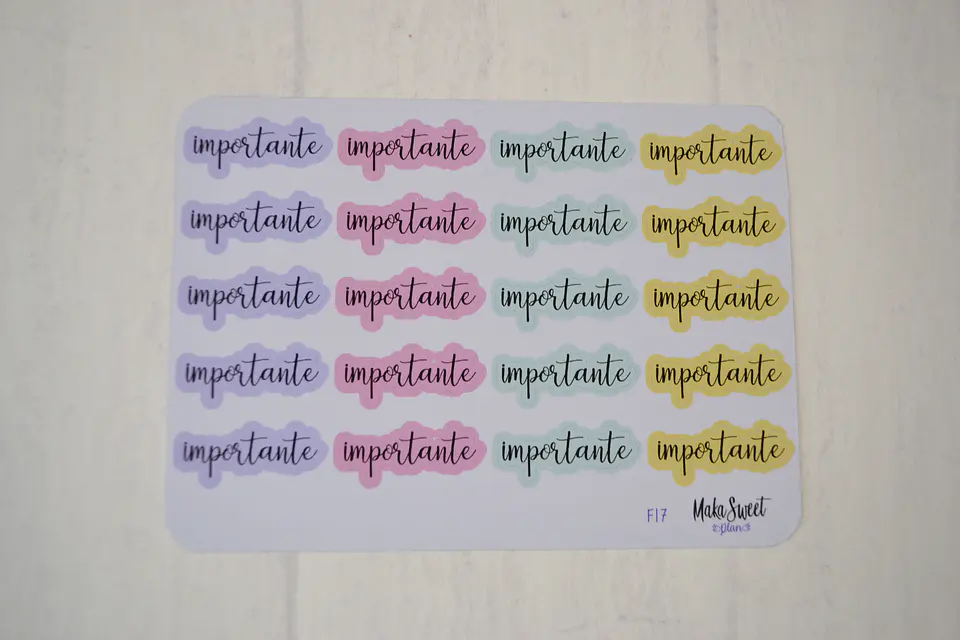 importante importante importante importante
importante importante importante importante
importante importante importante importante
importante importante importante importante
importante importante importante importante
F17 Maka Sweet
Plan